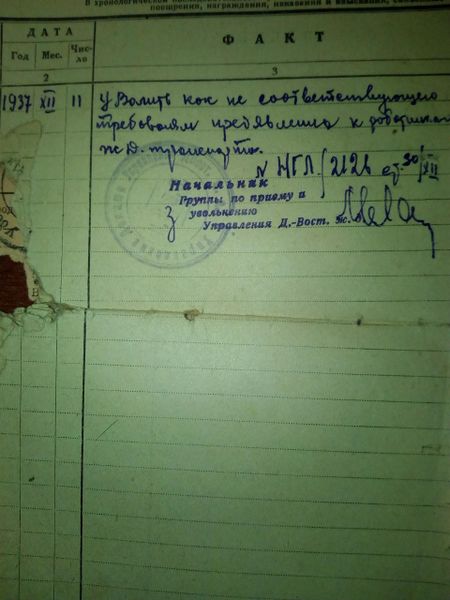 В хронологическом
поощрения, награждения, наказания и взыскания,
ДАТА
ФАКТ
Год Мес. Чис-
ло
2
3
1937 XII 11 уволить как не соответствующего
требованям
ж д. транспорта.
N НГЛ/2121 от 30/XII
Начальник
Группы по приему и
увольнению
Управления Д.-Вост. ж.